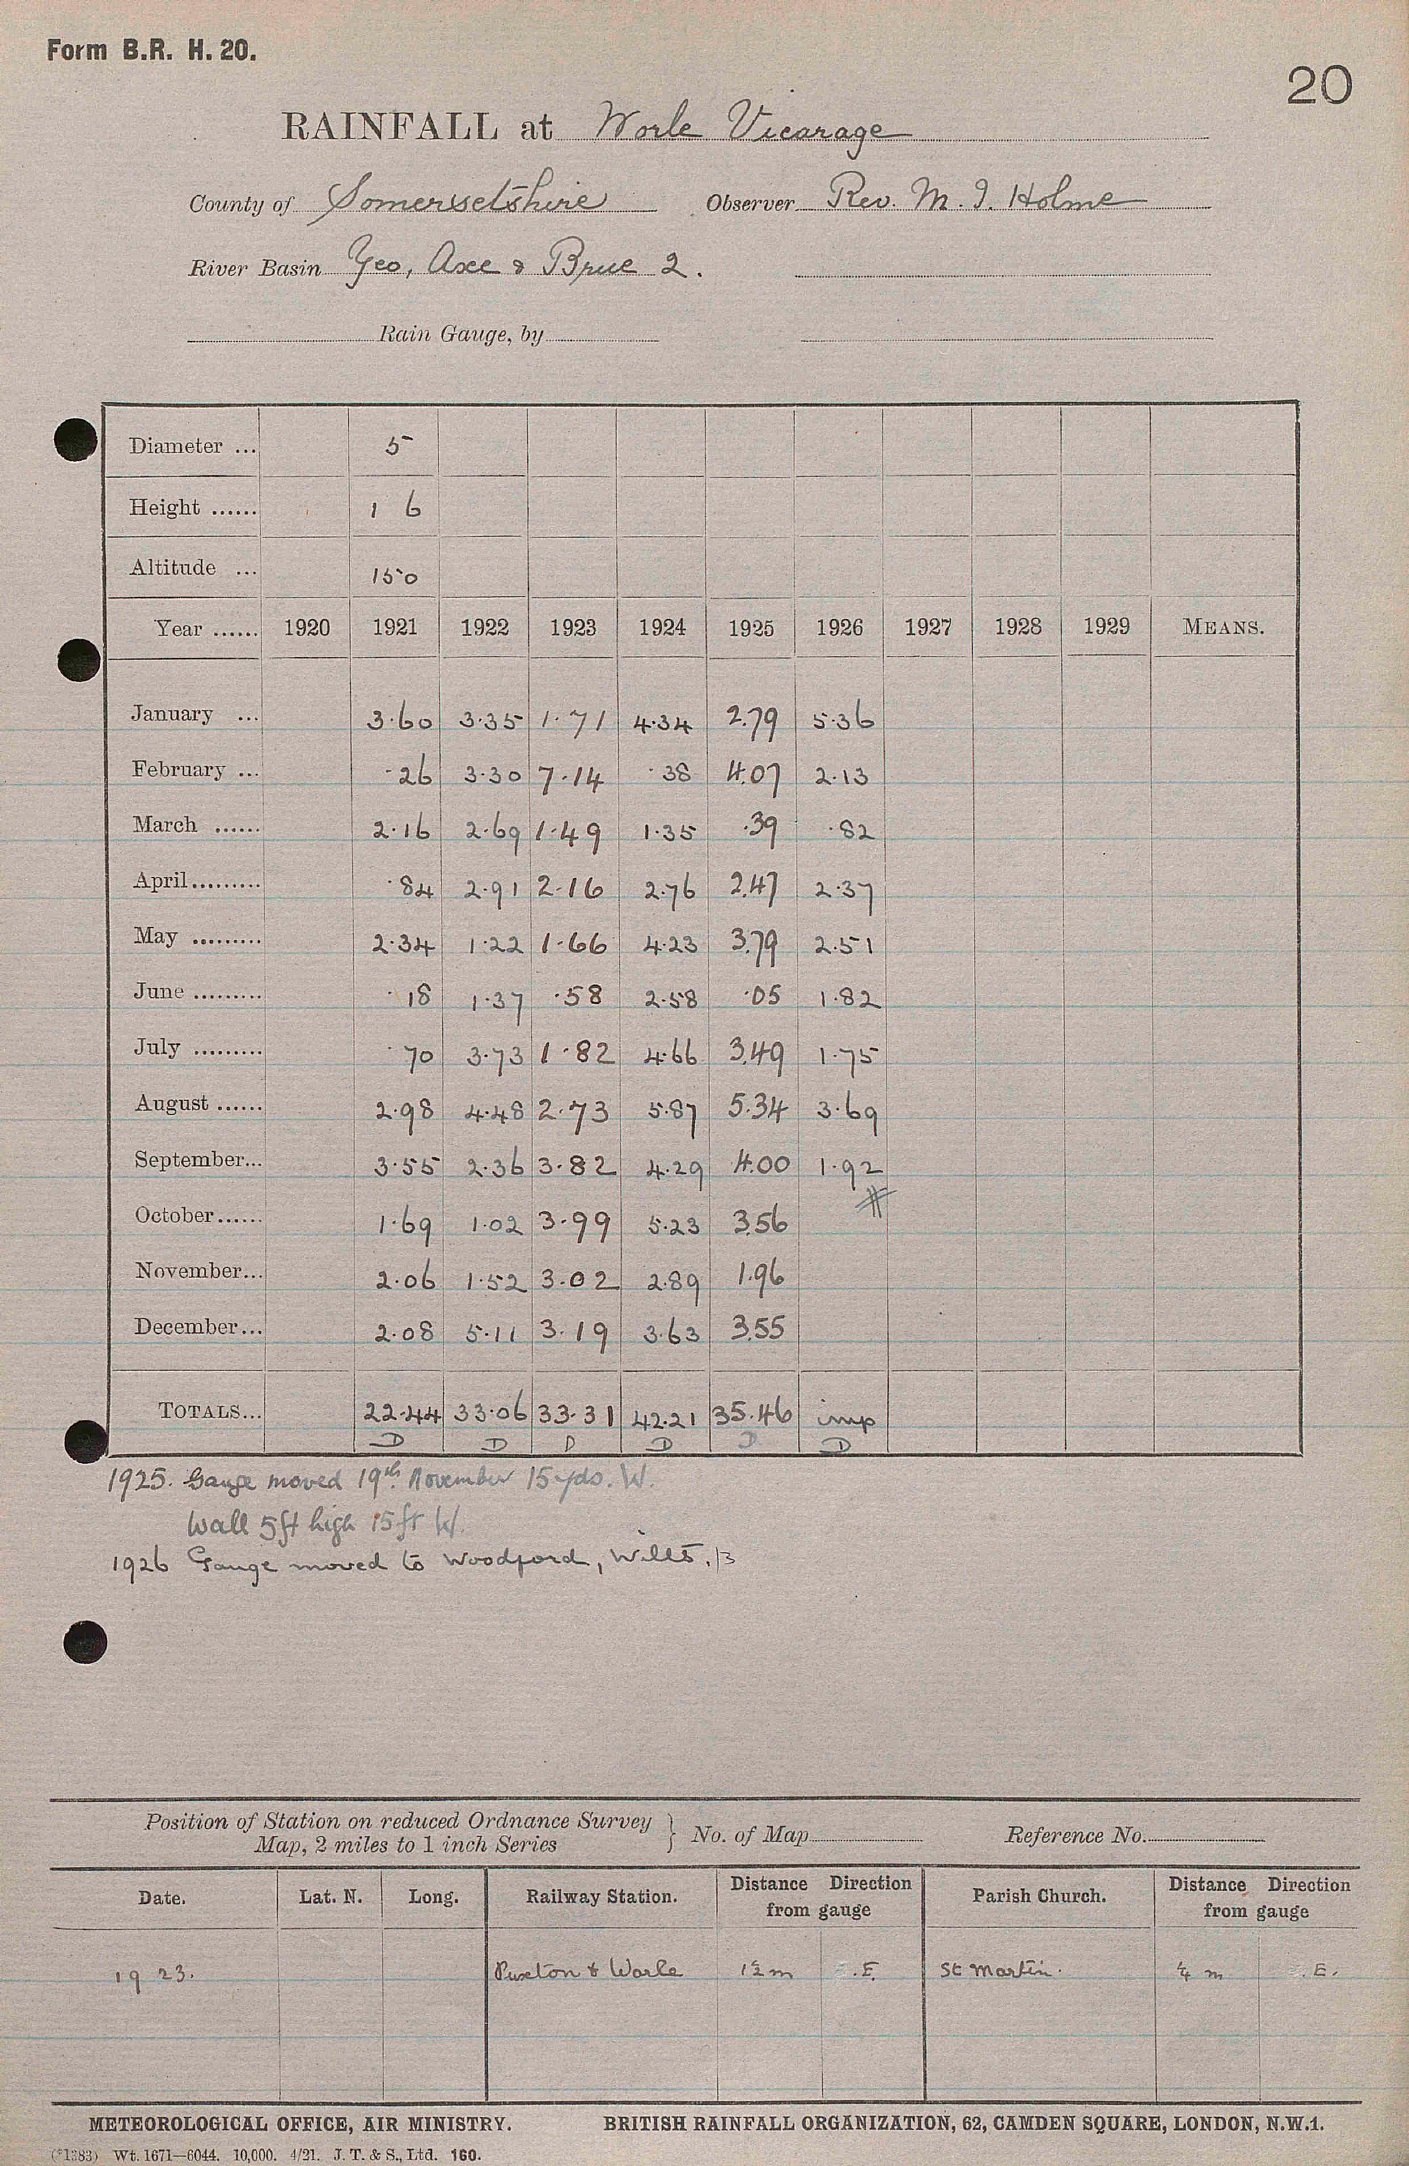 Form B.R. H. 20.
20
RAINFALL at Worle Vicarage
County of Somersetshire Observer Rev. M. I. Holme
River Basin Yeo, Axe & Brue 2.
Rain Gauge, by
Diameter ... 5
Height ...... 1 6
Altitude ... 150
Year ...... 1920 1921 1922 1923 1924 1925 1926 1927 1928 1929 MEANS.
January ... 3.60 3.35 1.71 4.34 2.79 5.36
February ... .26 3.30 7.14 .38 4.07 2.13
March ...... 2.16 2.69 1.49 1.35 .39 .82
April......... .84 2.91 2.16 2.76 2.47 2.37
May ......... 2.34 1.22 1.66 4.23 3.79 2.51
June ......... .18 1.37 .58 2.58 .05 1.82
July ......... .70 3.73 1.82 4.66 3.49 1.75
August ...... 2.98 4.48 2.73 5.87 5.34 3.69
September... 3.55 2.36 3.82 4.29 4.00 1.92
October...... 1.69 1.02 3.99 5.23 3.56
November... 2.06 1.52 3.02 2.89 1.96
December... 2.08 5.11 3.19 3.63 3.55
TOTALS... 22.44 33.06 33.31 42.21 35.46 imp
D D D D D D
1925. Gauge moved 19th November 15 yds. W.
Wall 5ft high 15 ft W.
1926 Gauge moved to Woodford, Wilts.
Position of Station on reduced Ordnance Survey
Map, 2 miles to 1 inch Series } No. of Map Reference No.
Date. Lat. N. Long. Railway Station. Distance Direction from gauge Parish Church. Distance Direction from gauge
1923. Puxton & Worle 1½ m .E. St Martin. ¼ m .E.
METEOROLOGICAL OFFICE, AIR MINISTRY. BRITISH RAINFALL ORGANIZATION, 62, CAMDEN SQUARE, LONDON, N.W.1.
(*1383) Wt. 1671—6044. 10,000. 4/21. J. T. & S., Ltd. 160.